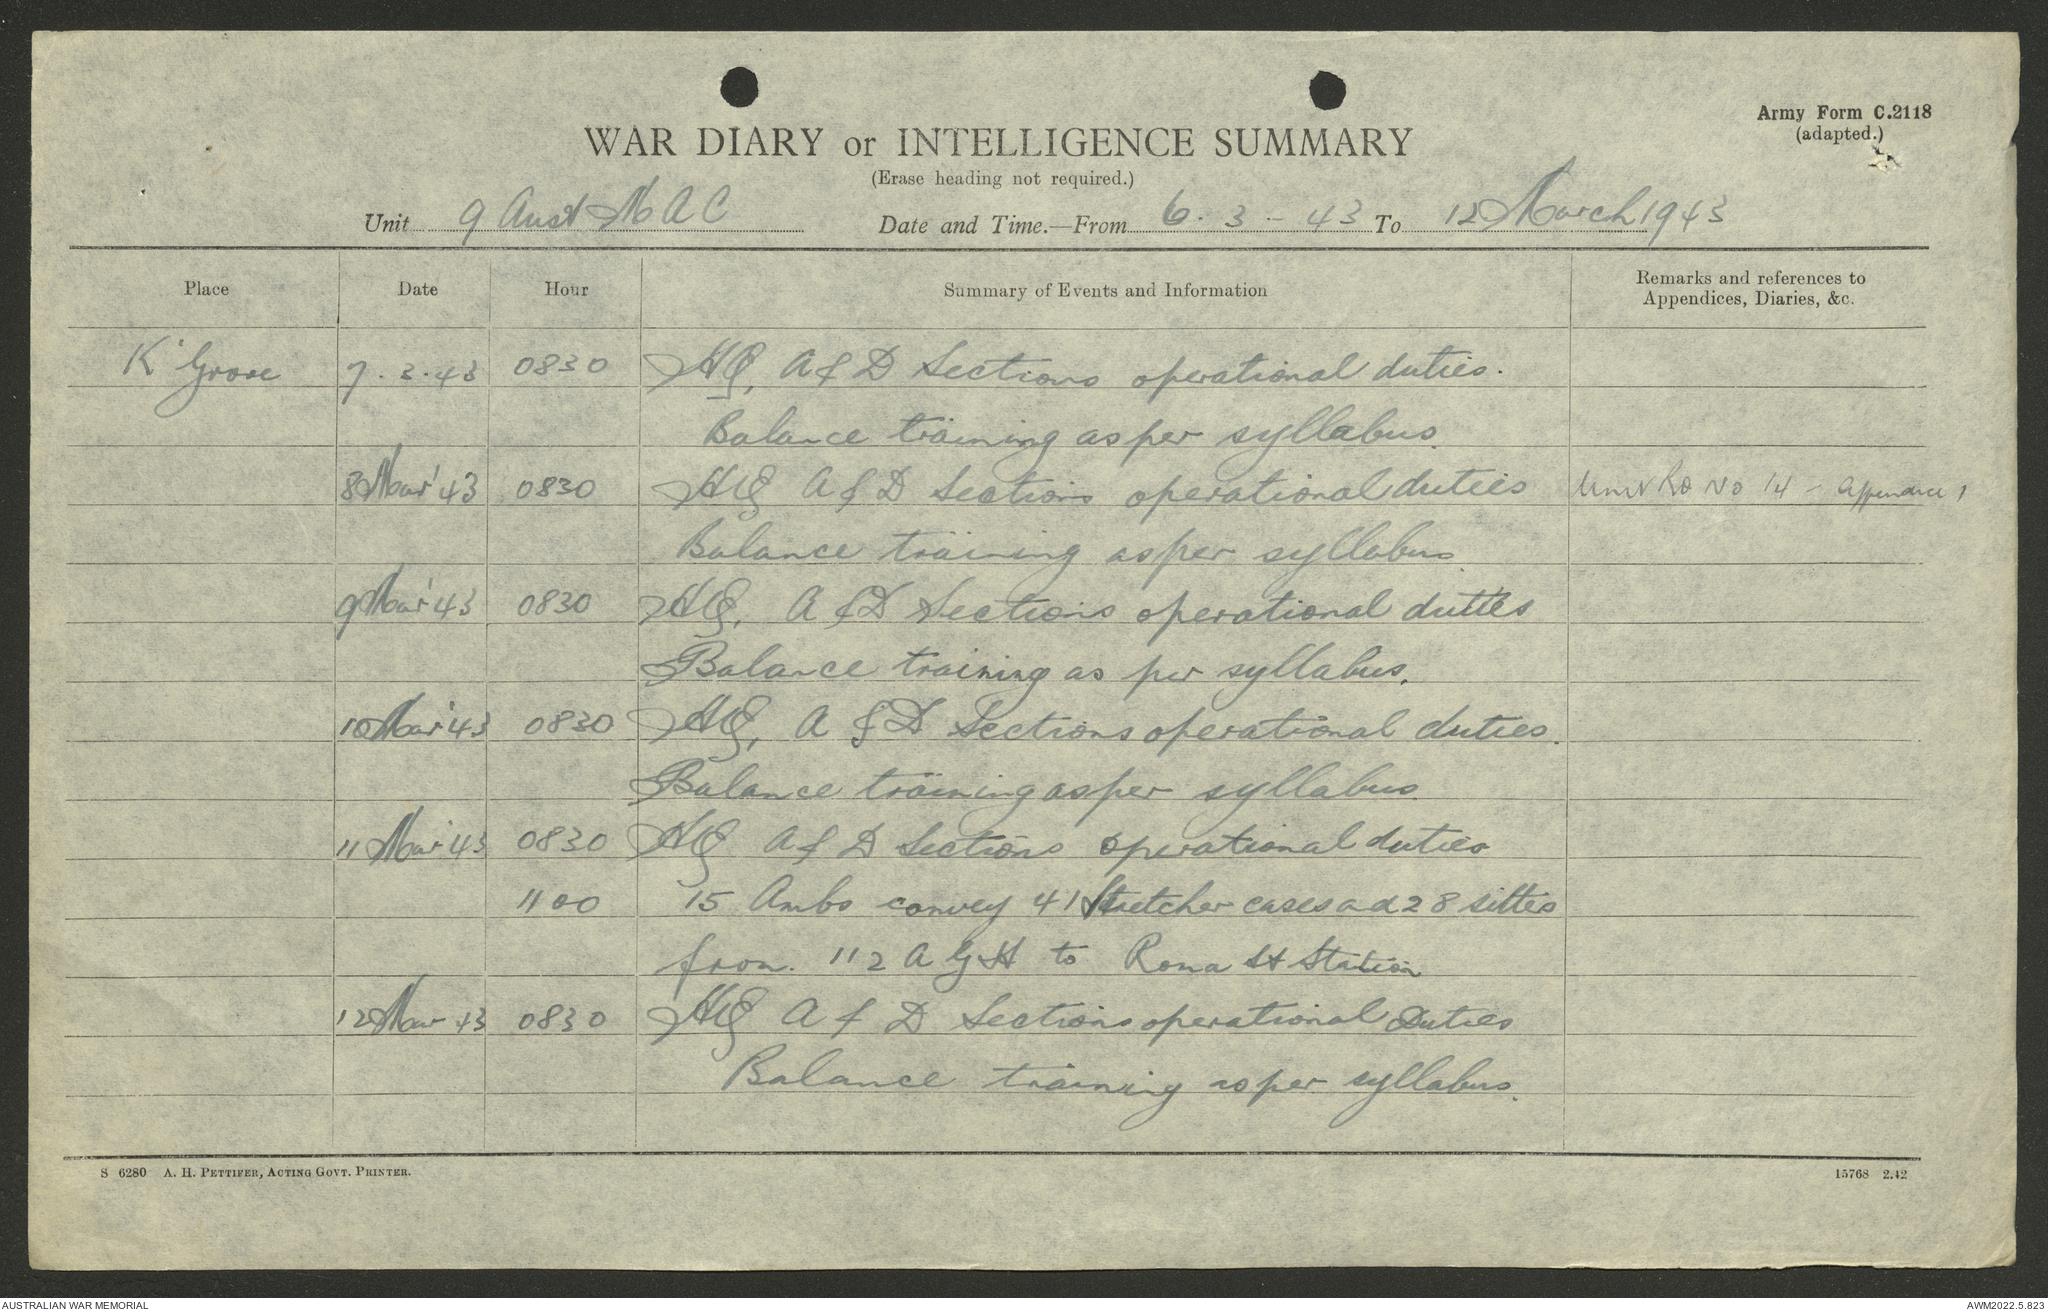 Army Form C.2118
(adapted.)
WAR DIARY or INTELLIGENCE SUMMARY
(Erase heading not required.)
Unit 9 Aust M A C Date and Time.—From 6. 3 - 43 To 12 March 1943
Place Date Hour Summary of Events and Information Remarks and references to Appendices, Diaries, &c.
K'Grove 7.3.43 0830 HQ, A & D Sections operational duties.
Balance training as per syllabus.
8 Mar '43 0830 HQ A & D Sections operational duties Unit RO No 14 - Appendice 1
Balance training as per syllabus
9 Mar '43 0830 HQ, A & D Sections operational duties
Balance training as per syllabus.
10 Mar '43 0830 HQ, A & D Sections operational duties.
Balance training as per syllabus.
11 Mar '43 0830 HQ A & D Sections operational duties
1100 15 Ambs convey 41 Stretcher cases and 28 sitters
from. 112 A G H to Roma St Station
12 Mar 43 0830 HQ A & D Sections operational Duties
Balance training as per syllabus.
S 6280 A. H. PETTIFER, ACTING GOVT. PRINTER. 15768 2.42
AUSTRALIAN WAR MEMORIAL AWM2022.5.823